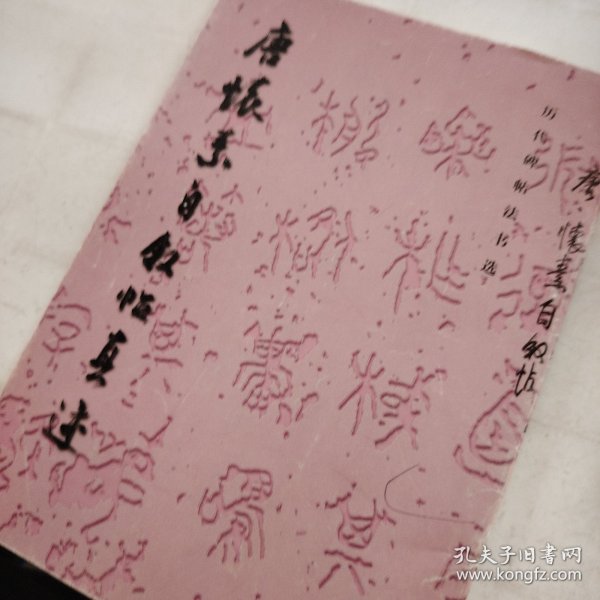 唐怀素自叙帖真迹
历代碑帖法书选
唐怀素自叙帖
孔夫子旧书网
www.kongfz.com